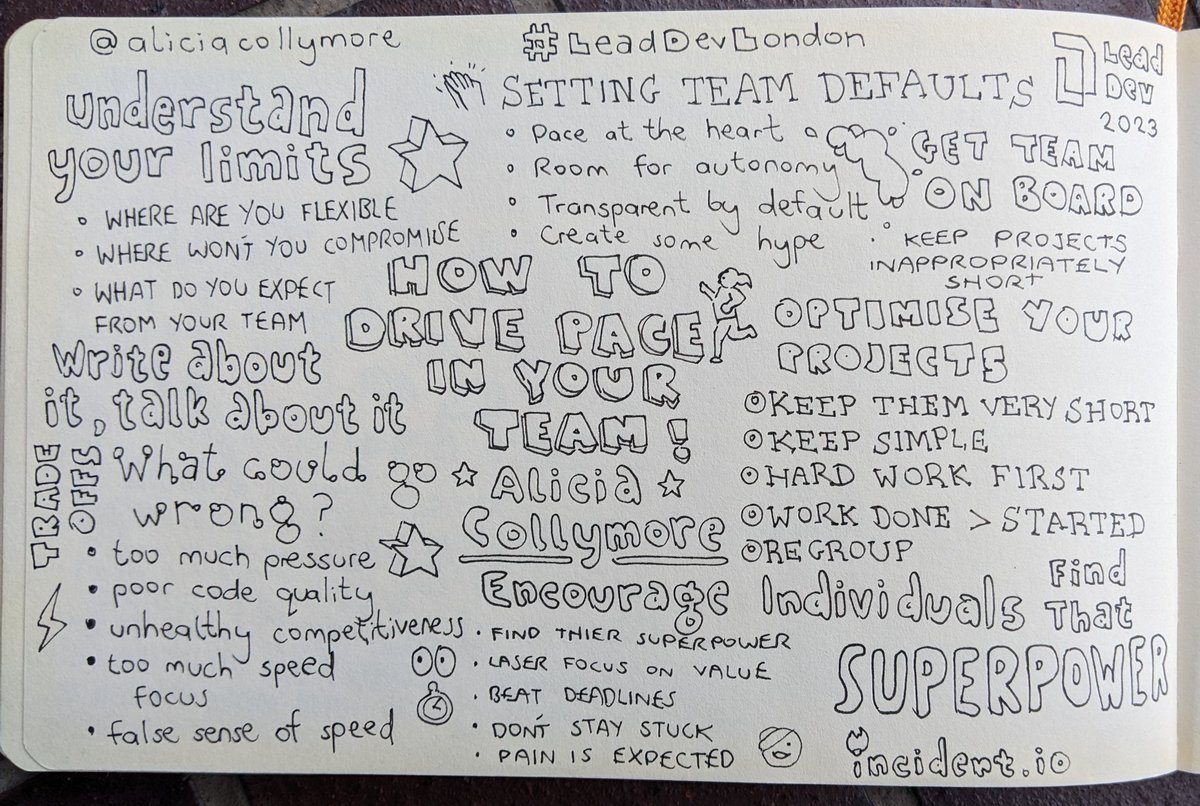 @aliciacollymore
#LeadDevLondon
Lead
Dev
2023
understand
your limits
• WHERE ARE YOU FLEXIBLE
• WHERE WON'T YOU COMPROMISE
• WHAT DO YOU EXPECT
FROM YOUR TEAM
SETTING TEAM DEFAULTS
• Pace at the heart
• Room for autonomy
• Transparent by default
• Create some hype
GET TEAM
ON BOARD
• KEEP PROJECTS
INAPPROPRIATELY
SHORT
HOW TO
DRIVE PACE
IN YOUR
TEAM!
Alicia
Collymore
Write about
it, talk about it
TRADE
OFFS
What could go
wrong?
• too much pressure
• poor code quality
• unhealthy competitiveness
• too much speed
focus
• false sense of speed
OPTIMISE YOUR
PROJECTS
⊙KEEP THEM VERY SHORT
⊙KEEP SIMPLE
⊙HARD WORK FIRST
⊙WORK DONE > STARTED
⊙REGROUP
Encourage Individuals
• FIND THIER SUPERPOWER
• LASER FOCUS ON VALUE
• BEAT DEADLINES
• DON'T STAY STUCK
• PAIN IS EXPECTED
Find
That
SUPERPOWER
incident.io